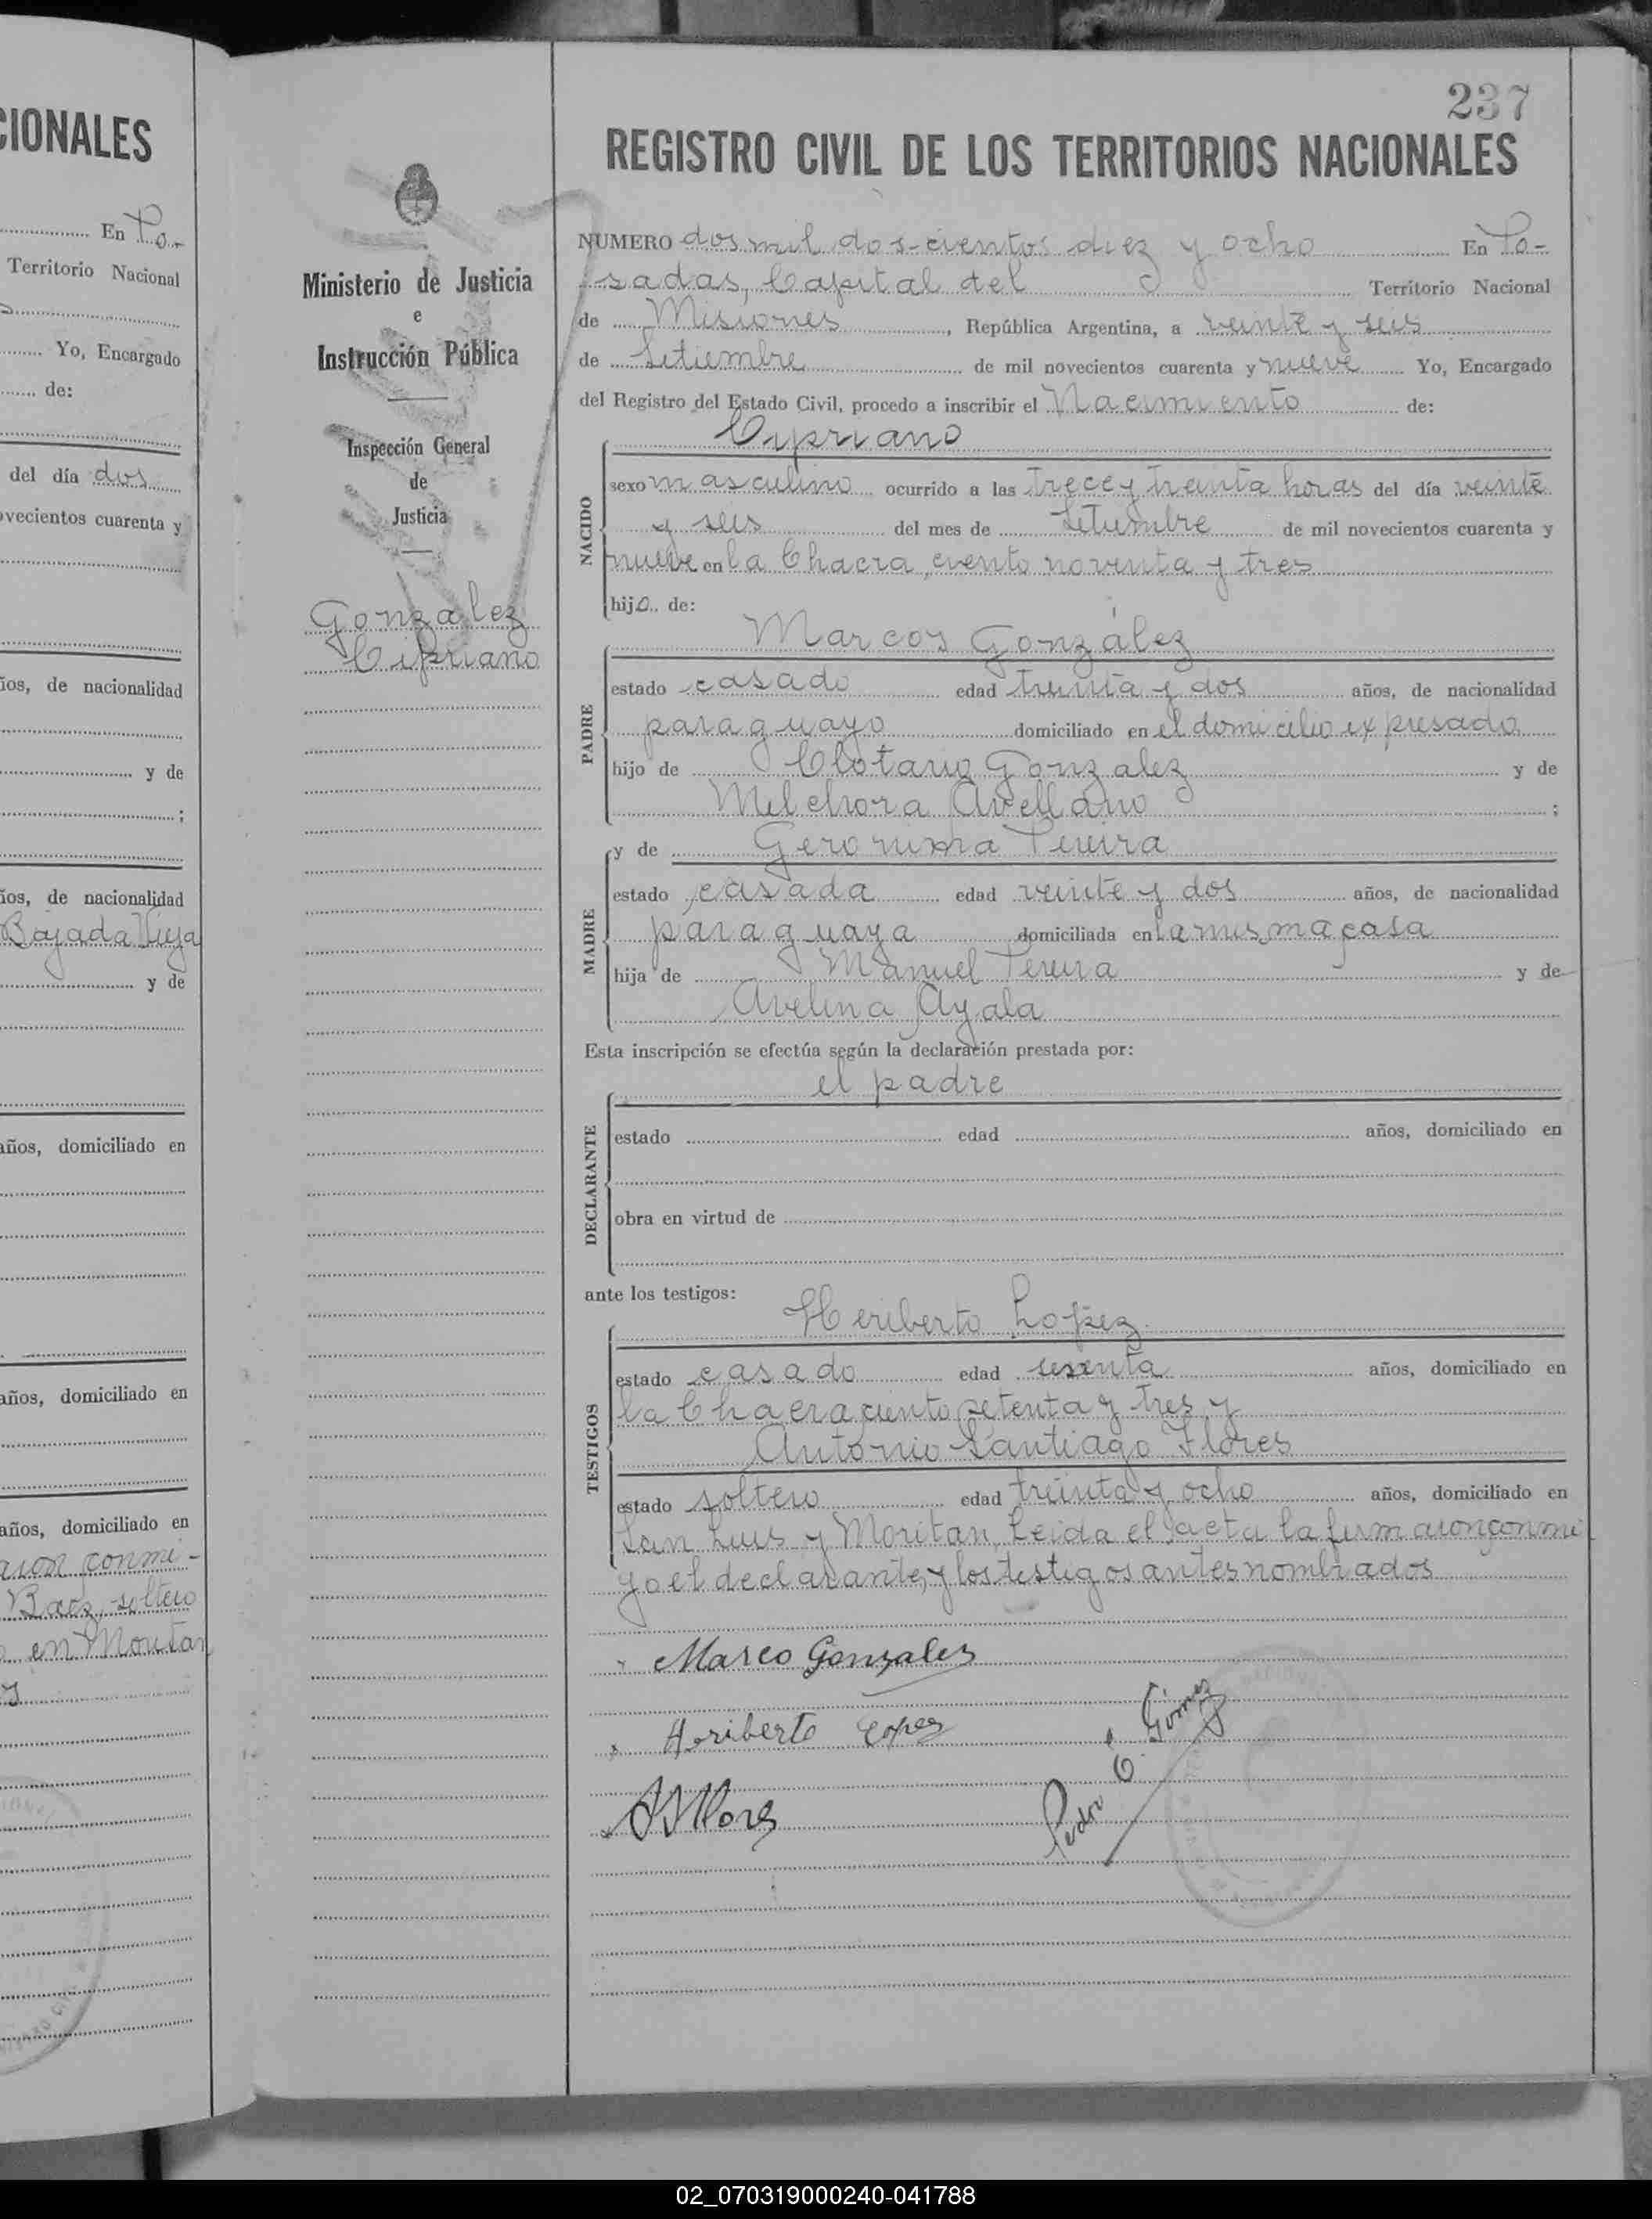 CIONALES
En Po-
Territorio Nacional
Yo, Encargado
de:
del día dos
ovecientos cuarenta y
ños, de nacionalidad
y de
;
ños, de nacionalidad
Bajada Vieja
y de
años, domiciliado en
años, domiciliado en
años, domiciliado en
conmi-
Baez, soltero
en
Ministerio de Justicia
e
Instrucción Pública
Inspección General
de
Justicia
Gonzalez
Cipriano
237
REGISTRO CIVIL DE LOS TERRITORIOS NACIONALES
NUMERO dos mil dos-cientos diez y ocho En Po-
sadas, Capital del Territorio Nacional
de Misiones, República Argentina, a veinte y seis
de Setiembre de mil novecientos cuarenta y nueve Yo, Encargado
del Registro del Estado Civil, procedo a inscribir el Nacimiento de:
Cipriano
NACIDO
sexo masculino ocurrido a las trece y treinta horas del día veinte
y seis del mes de Setiembre de mil novecientos cuarenta y
nueve en la Chacra ciento noventa y tres
hijo de:
Marcos González
PADRE
estado casado edad treinta y dos años, de nacionalidad
paraguayo domiciliado en el domicilio expresado
hijo de Clotario Gonzalez y de
Melchora Avellano ;
y de Geronima Pereira
MADRE
estado casada edad veinte y dos años, de nacionalidad
paraguaya domiciliada en la misma casa
hija de Manuel Pereira y de
Avelina Ayala
Esta inscripción se efectúa según la declaración prestada por:
el padre
DECLARANTE
estado edad años, domiciliado en
obra en virtud de
ante los testigos:
Heriberto Lopez
TESTIGOS
estado casado edad sesenta años, domiciliado en
la Chacra ciento setenta y tres y
Antonio Santiago Flores
estado soltero edad treinta y ocho años, domiciliado en
San Luis y Moritan, Leida el acta la firmaron conmi
go el declarante, y los testigos antes nombrados
Marco Gonzales
Heriberto Lopez
Flores
Pedro E. Gómez
02_070319000240-041788